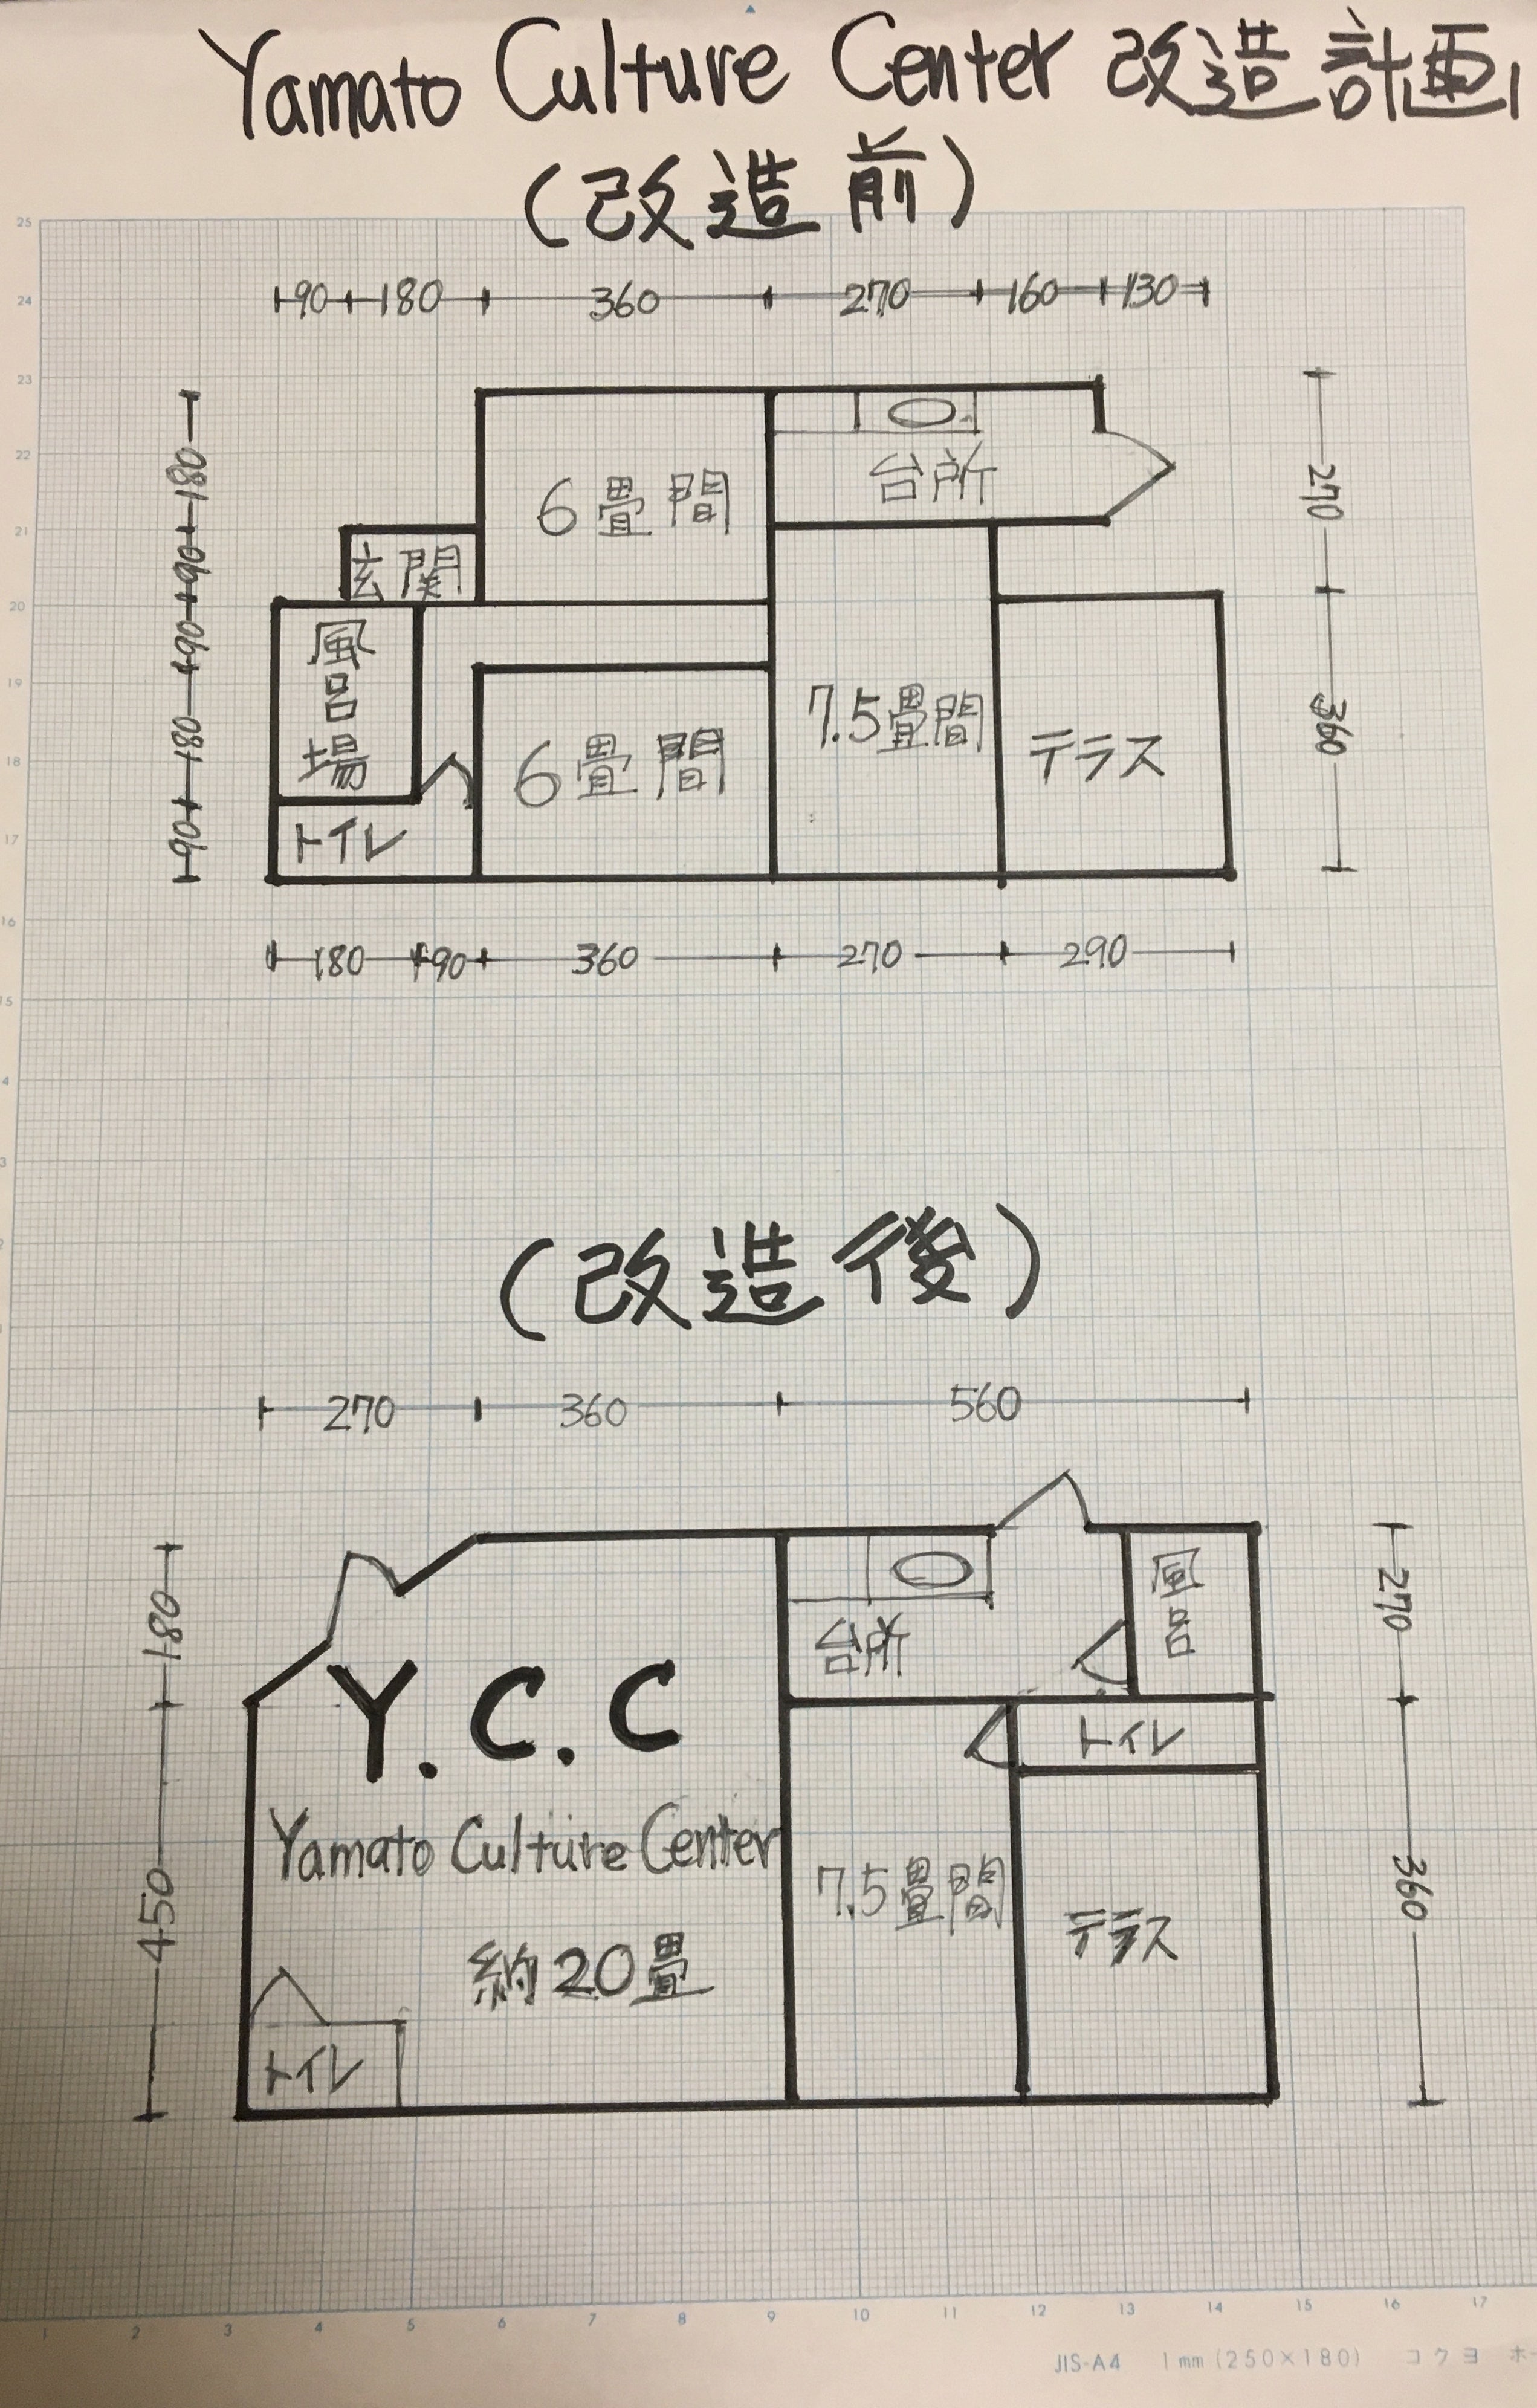 Yamato Culture Center 改造計画1
(改造前)
25
24
90 180 360 270 160 130
23
180
270
22
6畳間
台所
21
90
玄関
20
90
風呂場
19
7.5畳間
360
180
6畳間
テラス
18
17
90
トイレ
16
180 90 360 270 290
15
4
3
(改造後)
2
1
270 360 560
180
270
風呂
台所
Y.C.C
トイレ
Yamato Culture Center
450
7.5畳間
360
約20畳
テラス
トイレ
1 2 3 4 5 6 7 8 9 10 11 12 13 14 15 16 17
JIS-A4 1mm (250×180) コクヨ ホ